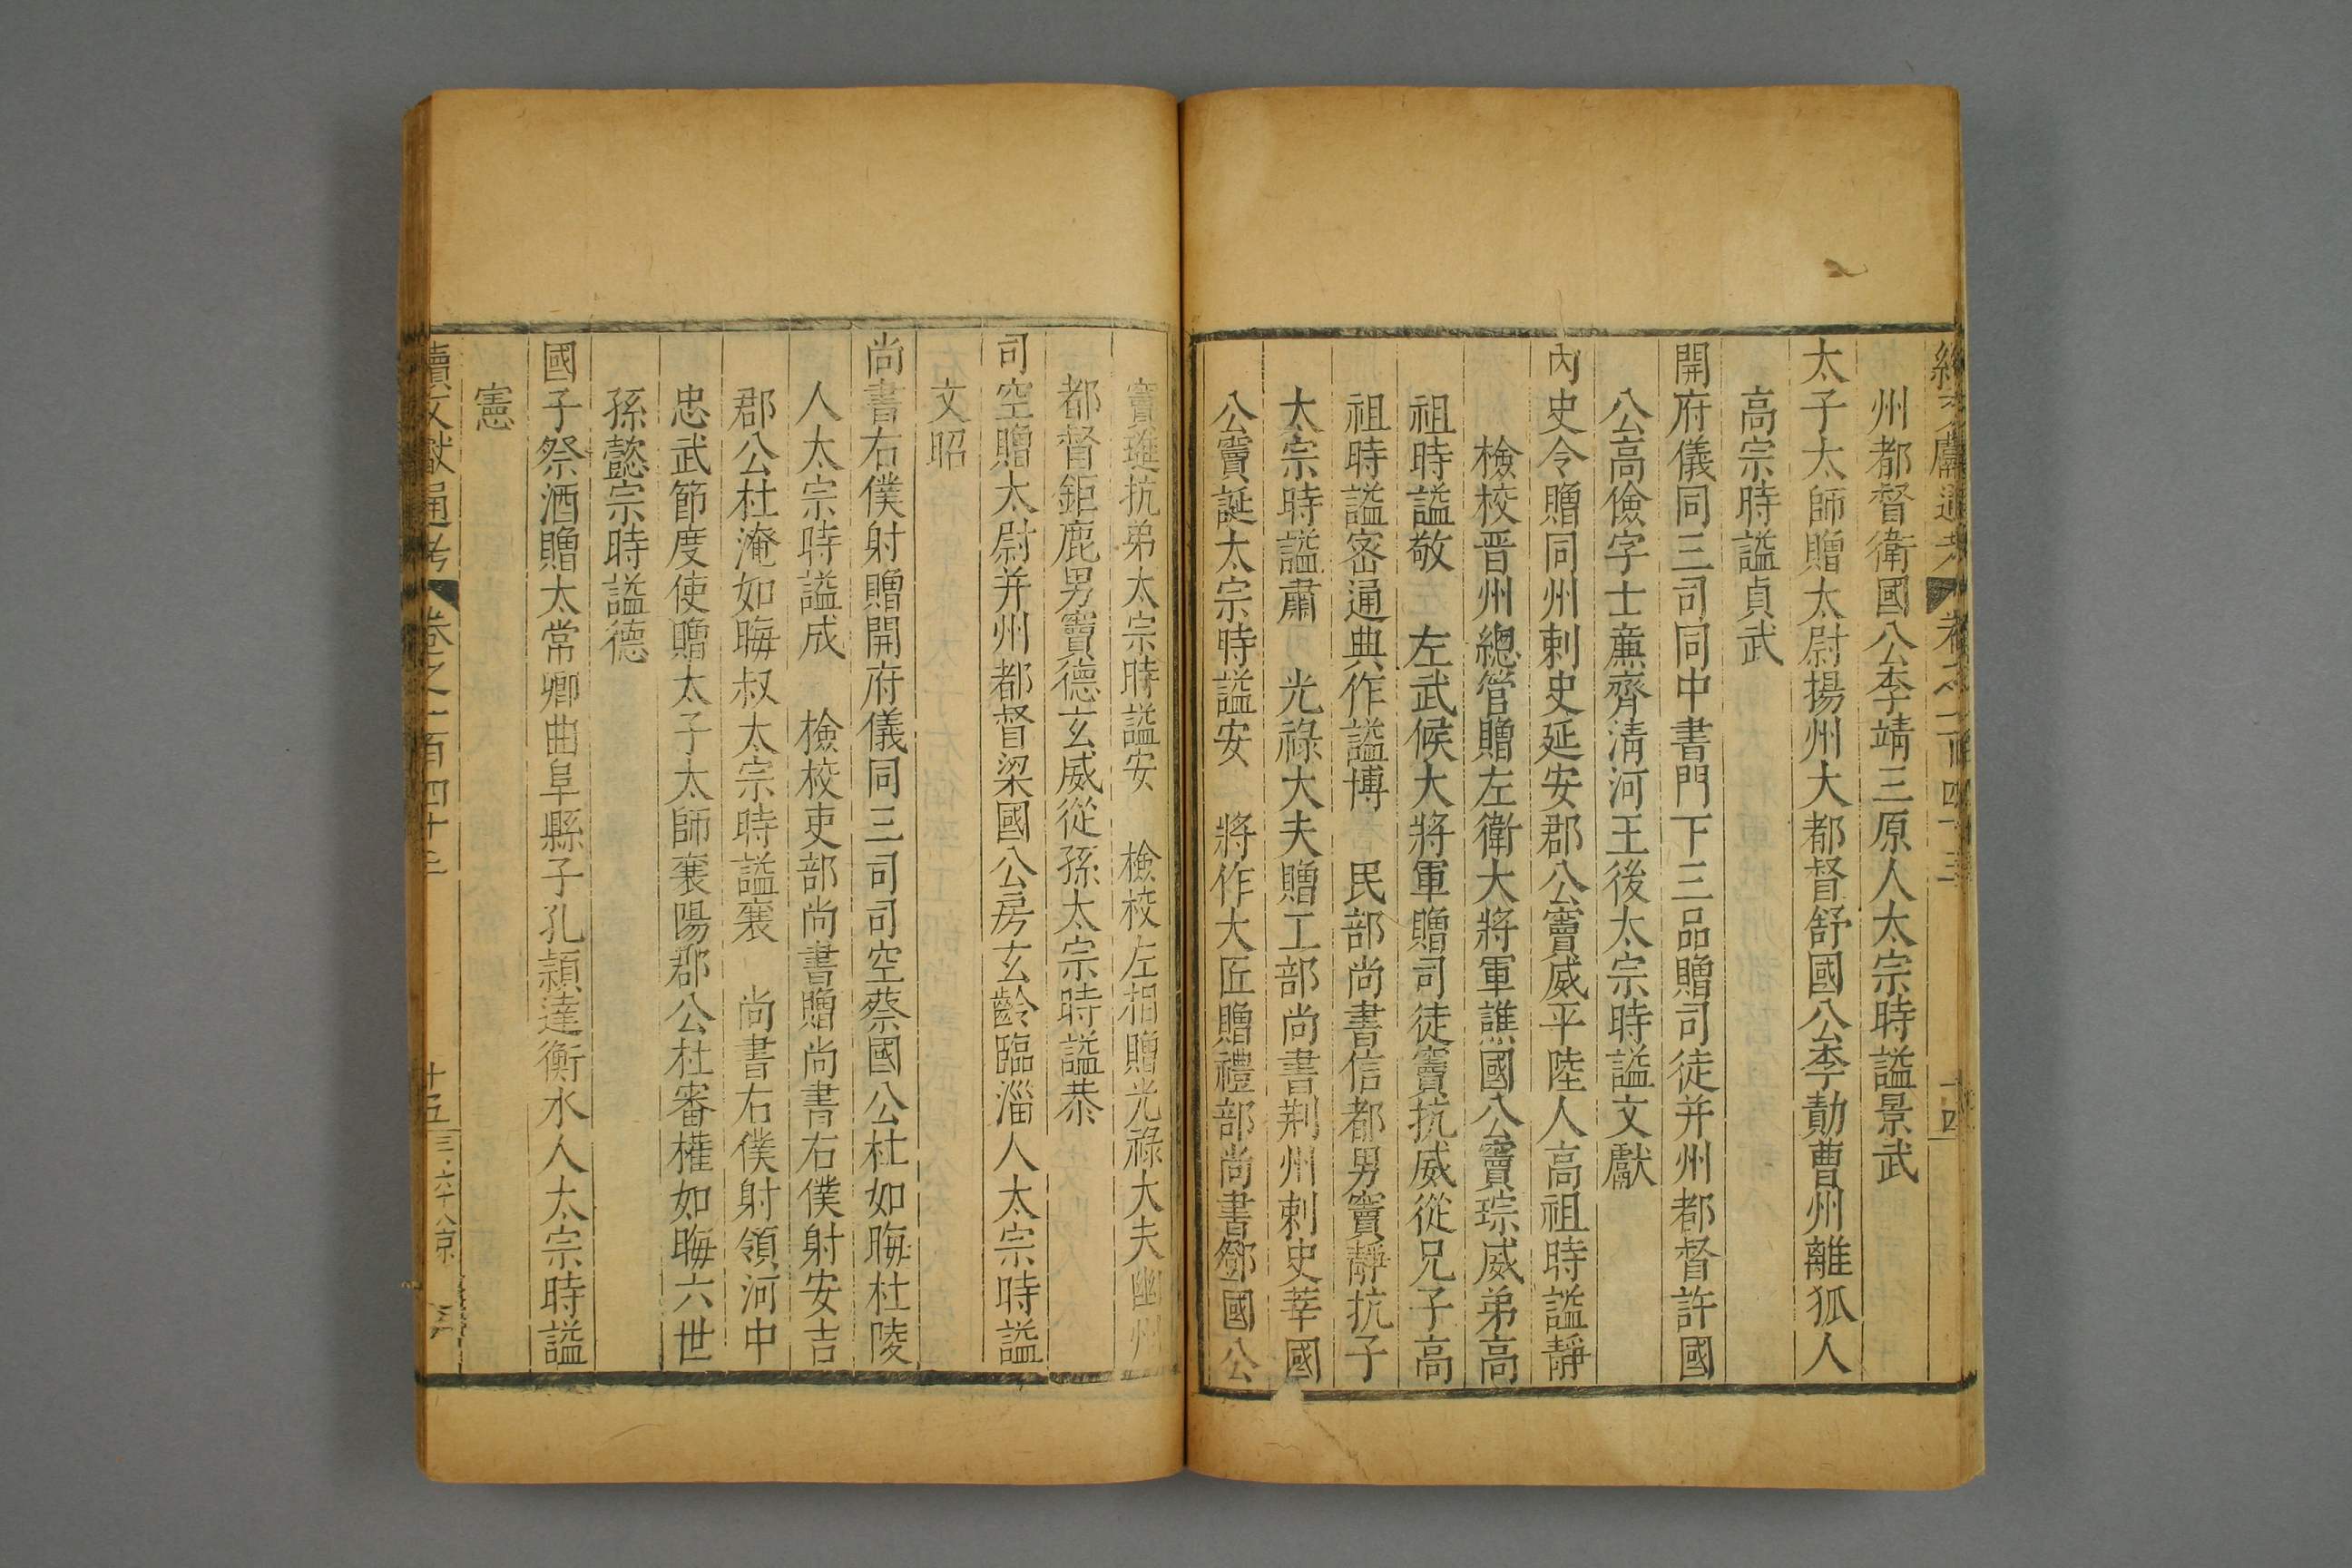 續文獻通考 卷之一百四十三 十四
州都督衛國公李靖三原人太宗時謚景武
太子太師贈太尉揚州大都督舒國公李勣曹州離狐人
高宗時謚貞武
開府儀同三司同中書門下三品贈司徒并州都督許國
公高儉字士亷齊淸河王後太宗時謚文獻
內史令贈同州刺史延安郡公竇威平陸人高祖時謚靜
檢校晋州總管贈左衛大將軍譙國公竇琮威弟高
祖時謚敬 左武候大將軍贈司徒竇抗威從兄子高
祖時謚宻通典作謚博 民部尚書信都男竇靜抗子
太宗時謚肅 光祿大夫贈工部尚書荆州刺史莘國
公竇誕太宗時謚安 將作大匠贈禮部尚書鄧國公
竇璡抗弟太宗時謚安 檢校左相贈光祿大夫幽州
都督鉅鹿男竇德玄威從孫太宗時謚恭
司空贈太尉并州都督梁國公房玄齡臨淄人太宗時謚
文昭
尚書右僕射贈開府儀同三司司空蔡國公杜如晦杜陵
人太宗時謚成 檢校吏部尚書贈尚書右僕射安吉
郡公杜淹如晦叔太宗時謚襄 尚書右僕射領河中
忠武節度使贈太子太師襄陽郡公杜審權如晦六世
孫懿宗時謚德
國子祭酒贈太常卿曲阜縣子孔穎達衡水人太宗時謚
憲
續文獻通考 卷之一百四十三 十五 三百六十八